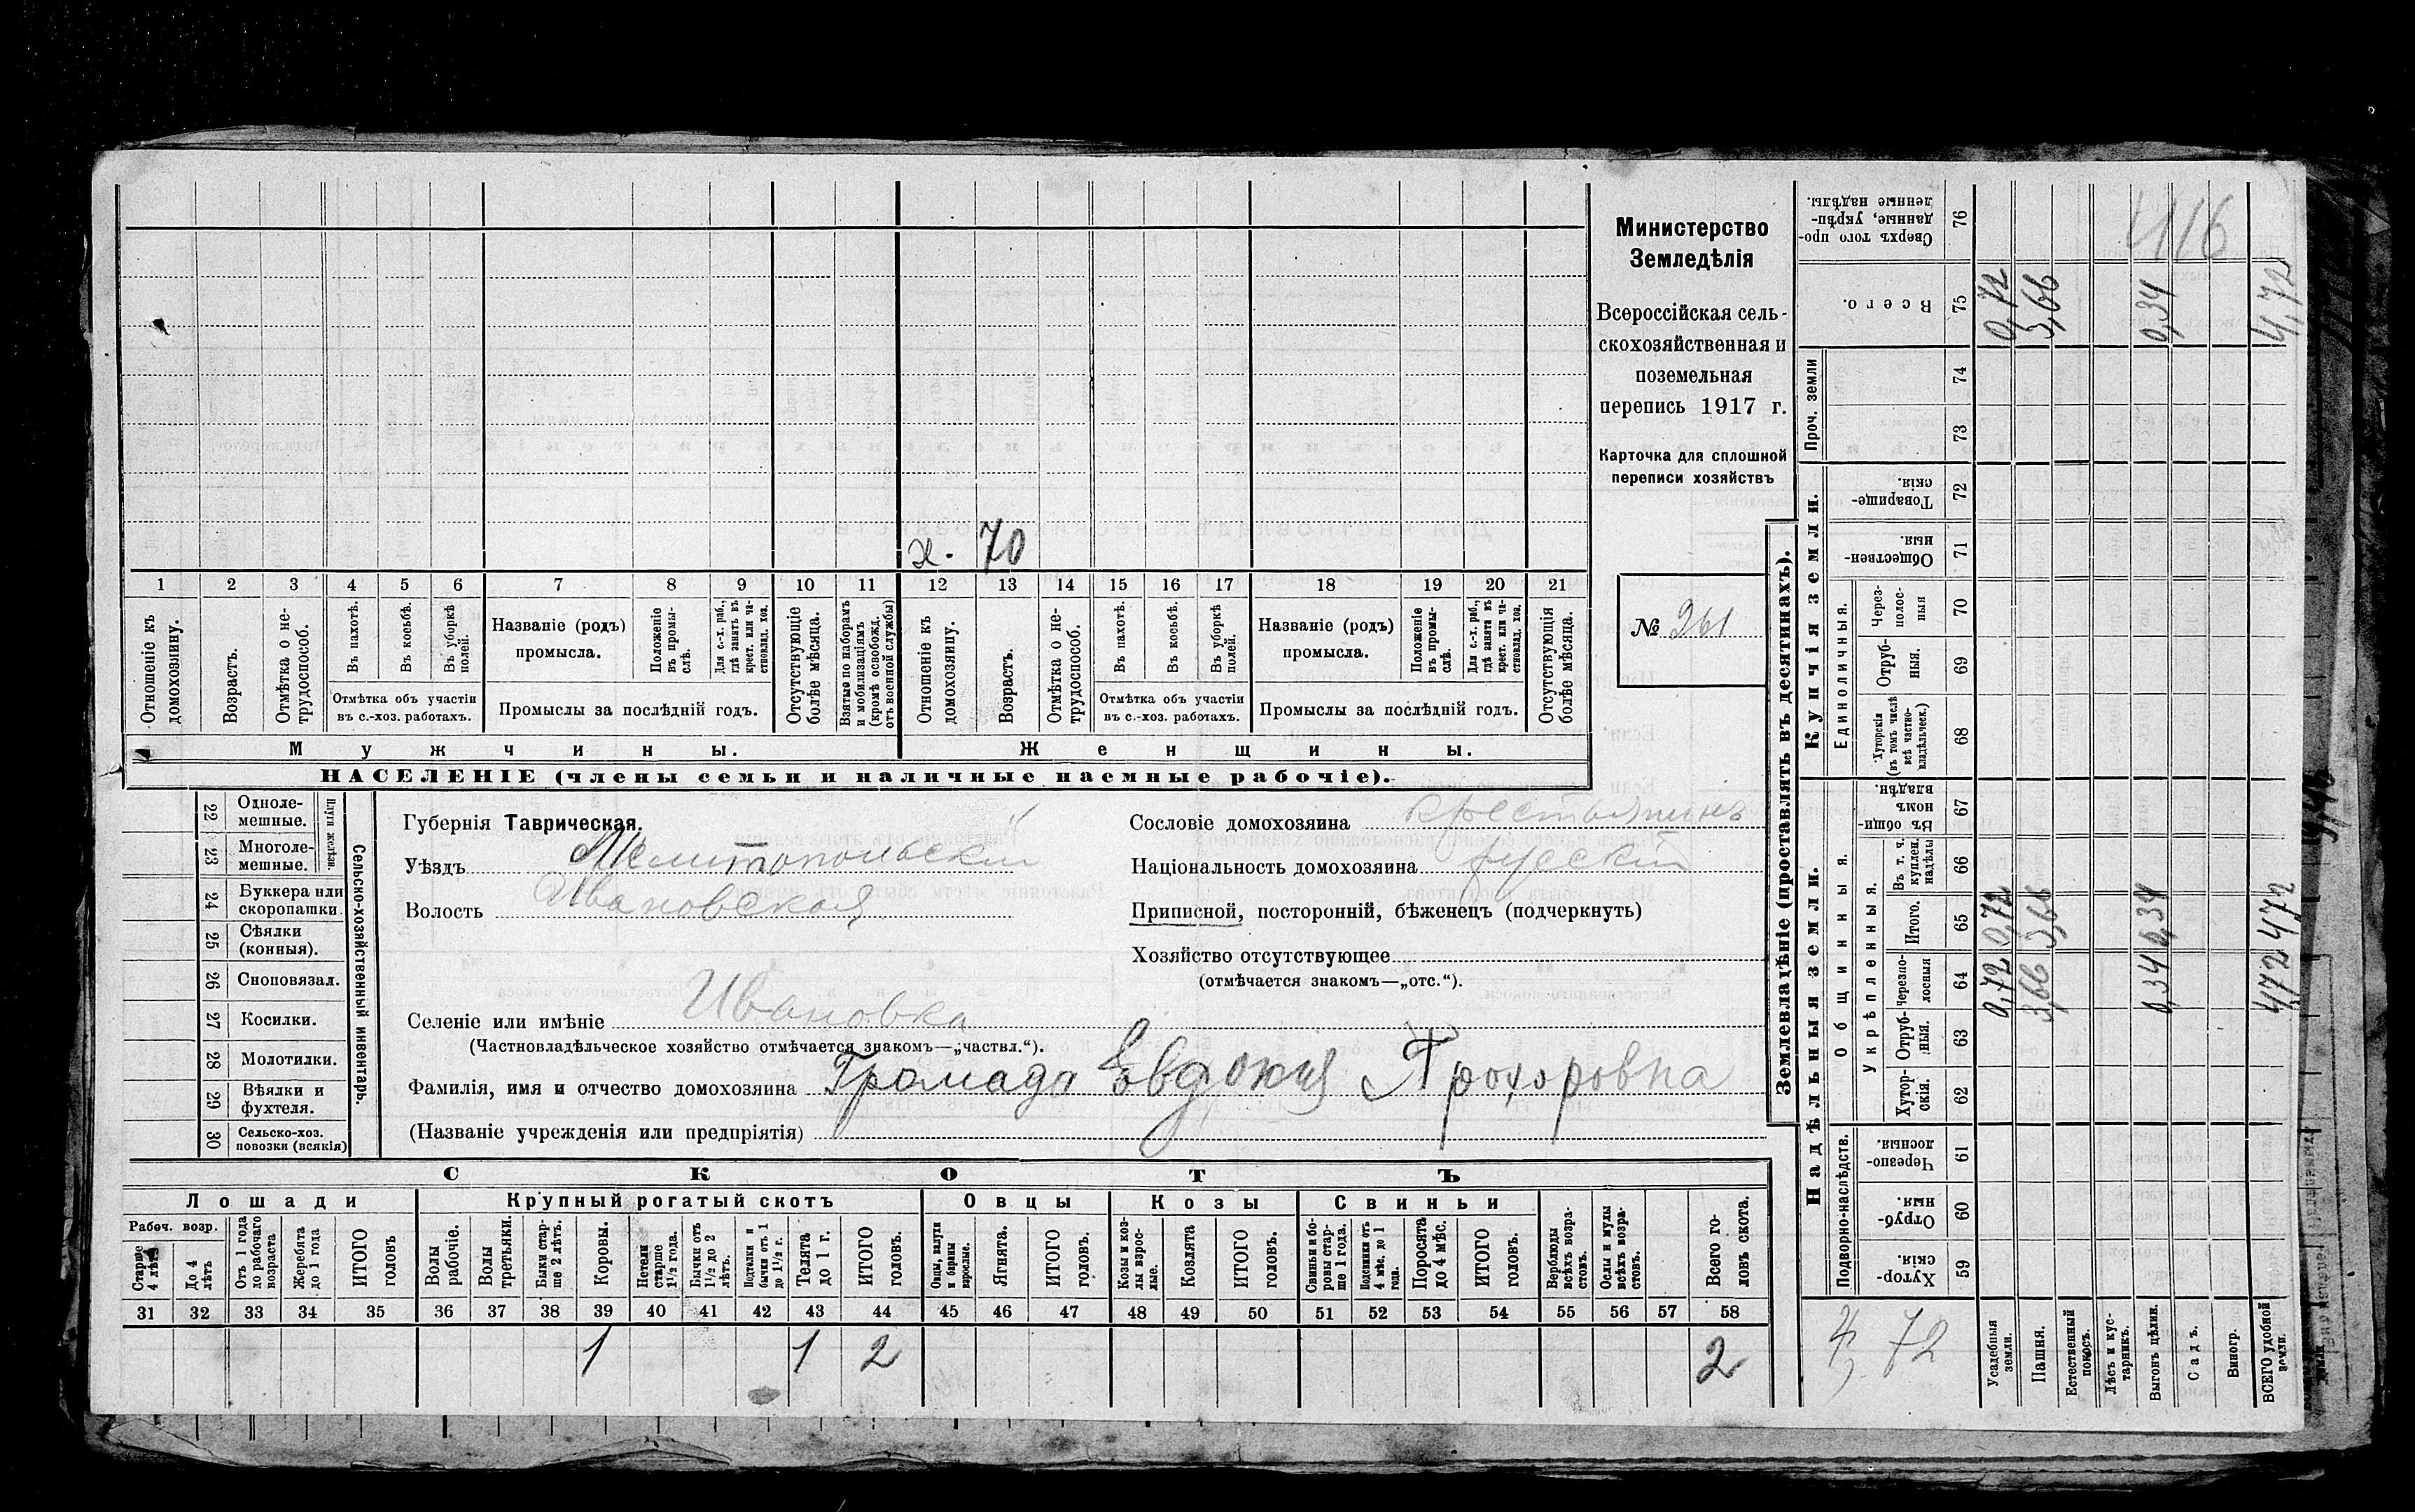 х. 70
1 2 3 4 5 6 7 8 9 10 11 12 13 14 15 16 17 18 19 20 21
Отношеніе къ домохозяину.
Возрастъ.
Отмѣтка о не-трудоспособ.
Въ пахотѣ.
Въ косьбѣ.
Въ уборкѣ полей.
Отмѣтка объ участіи въ с.-хоз. работахъ.
Названіе (родъ) промысла.
Положеніе въ промы-слѣ.
Для с.-х. раб., гдѣ занятъ въ крест. или ча-стновлад. хоз.
Промыслы за послѣдній годъ.
Отсутствующіе болѣе мѣсяца.
Взятые по наборамъ и мобилизаціямъ (кромѣ освобожд. отъ военной службы)
Отношеніе къ домохозяину.
Возрастъ.
Отмѣтка о не-трудоспособ.
Въ пахотѣ.
Въ косьбѣ.
Въ уборкѣ полей.
Отмѣтка объ участіи въ с.-хоз. работахъ.
Названіе (родъ) промысла.
Положеніе въ промы-слѣ.
Для с.-х. раб., гдѣ занята въ крест. или ча-стновлад. хоз.
Промыслы за послѣдній годъ.
Отсутствующія болѣе мѣсяца.
Мужчины.
Женщины.
НАСЕЛЕНІЕ (члены семьи и наличные наемные рабочіе).
Министерство
Земледѣлія
Всероссійская сель-
скохозяйственная и
поземельная
перепись 1917 г.
Карточка для сплошной
переписи хозяйствъ
№ 261
22 Одноле-мешные.
23 Многоле-мешные.
Плуги желѣзн.
24 Буккера или скоропашки.
25 Сѣялки (конныя).
26 Сноповязал.
27 Косилки.
28 Молотилки.
29 Вѣялки и фухтеля.
30 Сельско-хоз. повозки (всякія)
Сельско-хозяйственный инвентарь.
Губернія Таврическая.
Уѣздъ Мелитопольскій
Волость Ивановская
Селеніе или имѣніе Ивановка
(Частновладѣльческое хозяйство отмѣчается знакомъ—„частвл.“).
Фамилія, имя и отчество домохозяина Громада Евдокия Прохоровна
(Названіе учрежденія или предпріятія)
Сословіе домохозяина крестьянинъ
Національность домохозяина русскій
Приписной, посторонній, бѣженецъ (подчеркнуть)
Хозяйство отсутствующее
(отмѣчается знакомъ—„отс.“).
СКОТЪ
Лошади
Рабоч. возр.
Старше 4 лѣтъ
До 4 лѣтъ
Отъ 1 года до рабочаго возраста
Жеребята до 1 года
ИТОГО головъ
Крупный рогатый скотъ
Волы рабочіе.
Волы третьяки.
Быки стар-ше 2 лѣтъ.
Коровы.
Нетели старше 1½ года.
Бычки отъ 1½ до 2 лѣтъ.
Подтелки и бычки отъ 1 до 1½ г.
Телята до 1 г.
ИТОГО головъ.
Овцы
Овцы, валухи и бараны взрослые.
Ягнята.
ИТОГО головъ.
Козы
Козы и коз-лы взрос-лые.
Козлята
ИТОГО головъ.
Свиньи
Свиньи и бо-ровы стар-ше 1 года.
Подсвинки отъ 4 мѣс. до 1 года.
Поросята до 4 мѣс.
ИТОГО головъ.
Верблюды всѣхъ возра-стовъ.
Ослы и мулы всѣхъ возра-стовъ.
Всего го-ловъ скота.
31 32 33 34 35 36 37 38 39 40 41 42 43 44 45 46 47 48 49 50 51 52 53 54 55 56 57 58
1 1 2 2
Землевладѣніе (проставлять въ десятинахъ).
Купчія земли.
Надѣльныя земли.
Сверхъ того про-данные, укрѣп-ленные надѣлы. 76
416
Всего. 75 0,72 3,66 0,34 4,72
Проч. земли 74 73
Товарище-скія. 72
Обществен-ныя. 71
Единоличныя.
Через-полос-ныя 70
Отруб-ныя. 69
Хуторскія (въ томъ числѣ всѣ частно-владѣльческ.) 68
Общинныя.
Въ общи-номъ владѣн. 67
Укрѣпленныя.
Въ т. ч. куплен. надѣлы 66
Итого. 65 0,72 3,66 0,34 4,72
Черезпо-лосныя 64 0,72 3,66 0,34 4,72
Отруб-ныя. 63
Хутор-скія. 62
Подворно-наслѣдств.
Черезпо-лосныя. 61
Отруб-ныя. 60
Хутор-скія. 59
4,72
Усадебныя земли.
Пашня.
Естественный покосъ.
Лѣсъ и кус-тарникъ.
Выгонъ цѣлин.
Садъ.
Виногр.
ВСЕГО удобной земли.